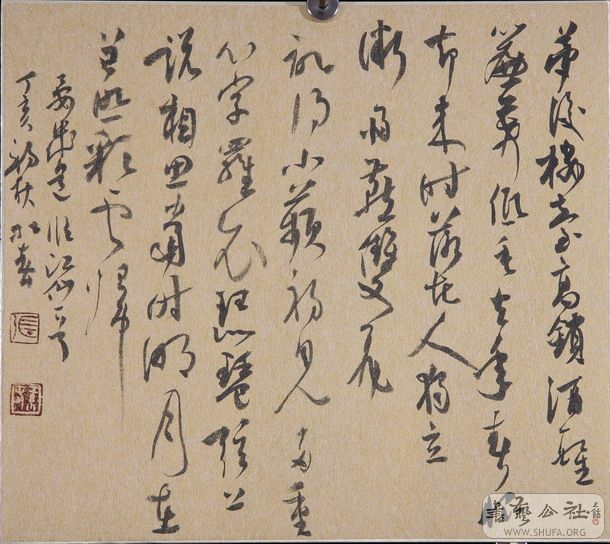 夢後樓臺高鎖酒醒
簾幕低垂去年春恨
却来时落花人独立
微雨燕雙飛
記得小蘋初見两重
心字羅衣琵琶弦上
説相思當时明月在
曾照彩雲歸
晏幾道临江仙
丁亥初秋
張
書藝公社
WWW.SHUFA.ORG